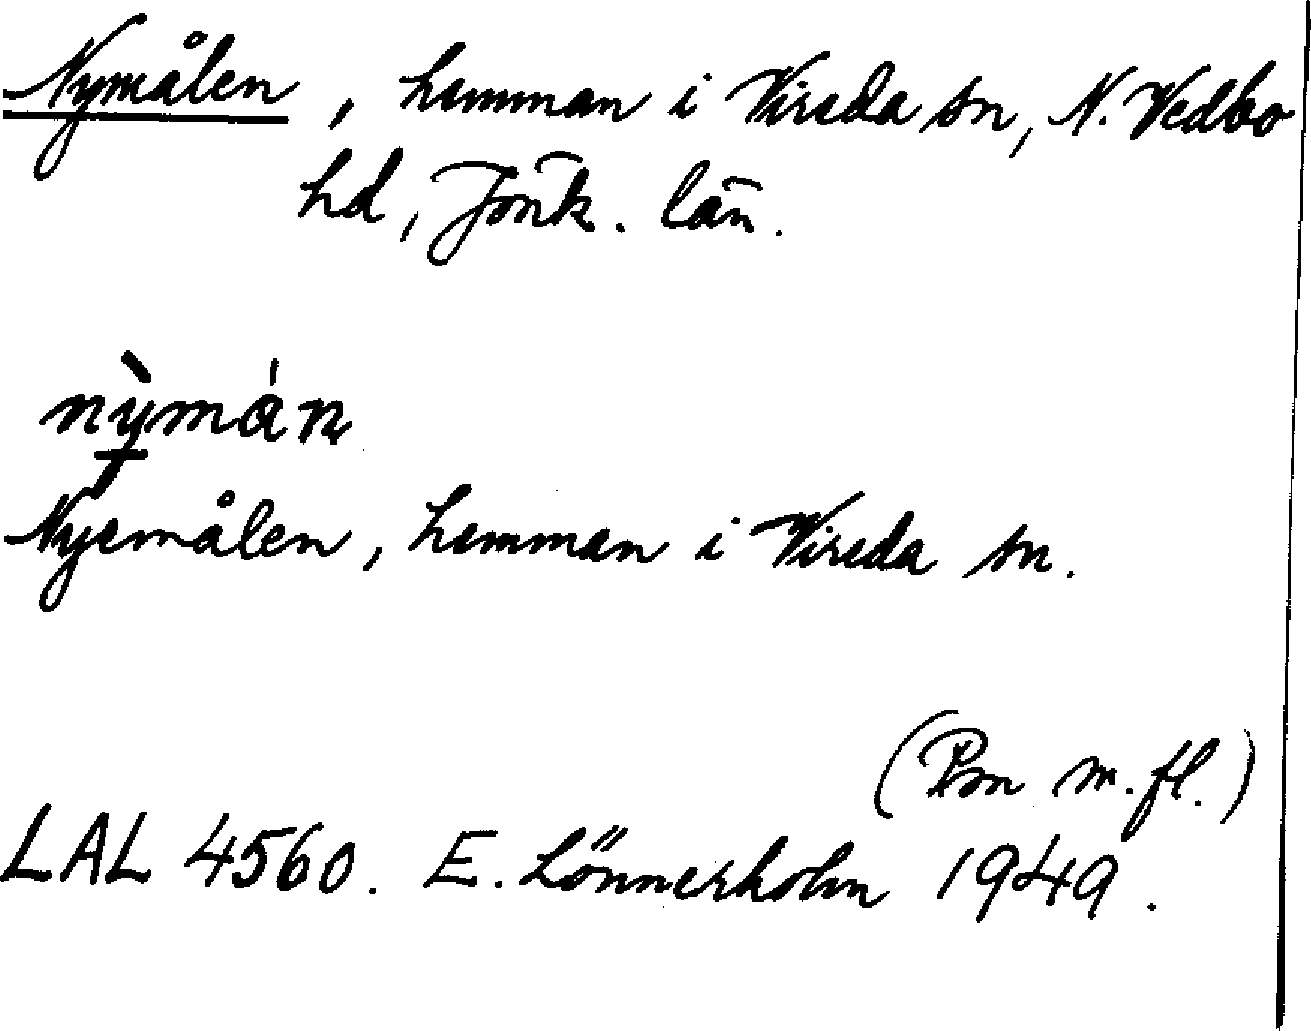 Nymålen, hemman i Vireda sn, N. Vedbo
hd, Jönk. län.
Nyemålen, hemman i Vireda sn.
(Pm m.fl.)
LAL 4560. E. Lönnerholm 1949.